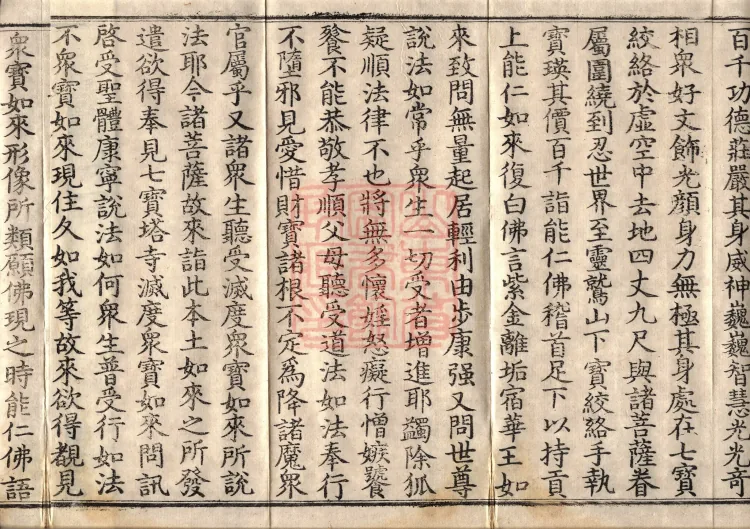 百千功德莊嚴其身威神巍巍智慧光光奇
相衆好文飾光顔身力無極其身處在七寶
絞絡於虛空中去地四丈九尺與諸菩薩眷
屬圍繞到忍世界至靈鷲山下寶絞絡手執
寶瑛其價百千詣能仁佛稽首足下以持貢
上能仁如來復白佛言紫金離垢宿華王如
來致問無量起居輕利由步康强又問世尊
說法如常乎衆生一切受者增進耶蠲除狐
疑順法律不也將無多懷婬怒癡行憎嫉饕
餮不能恭敬孝順父母聽受道法如法奉行
不墮邪見愛惜財寶諸根不定爲降諸魔衆
官屬乎又諸衆生聽受滅度衆寶如來所說
法耶今諸菩薩故來詣此本土如來之所發
遣欲得奉見七寶塔寺滅度衆寶如來問訊
啓受聖體康寧說法如何衆生普受行如法
不衆寶如來現住久如我等故來欲得觀見
衆寶如來形像所類願佛現之時能仁佛語